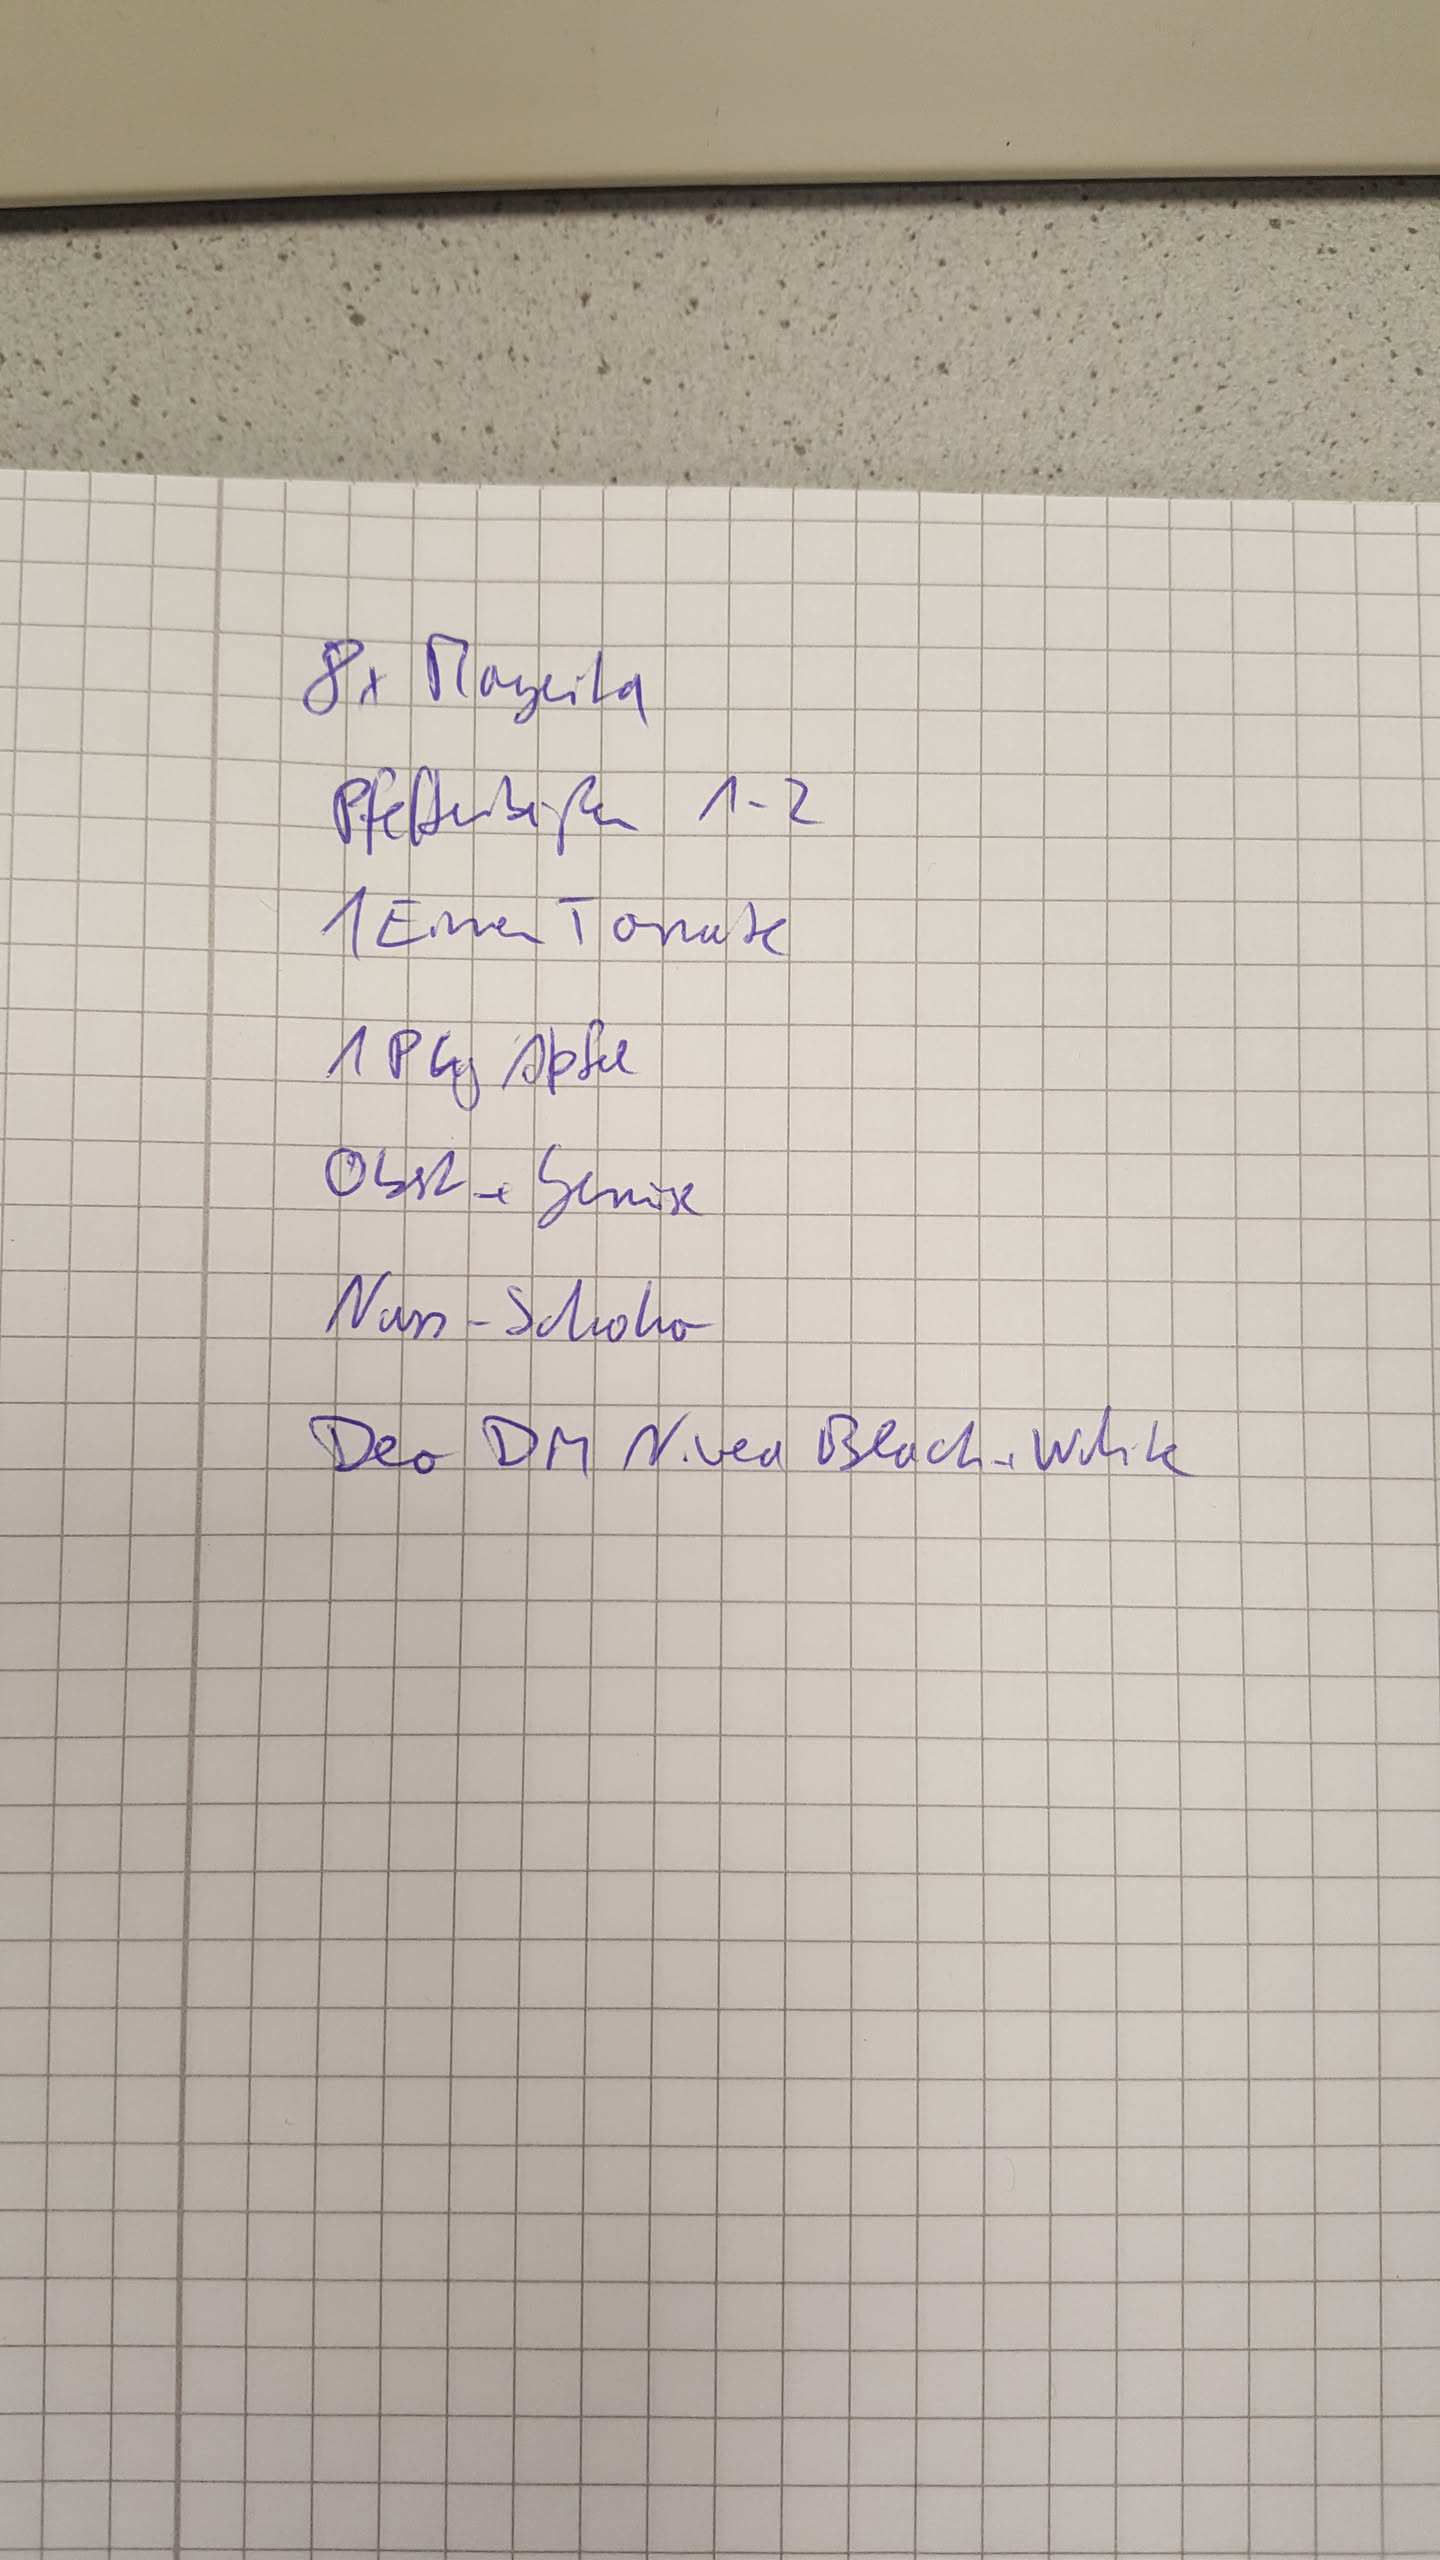 8x Magerita
Pfefferbeißer 1-2
1 Eimer Tomate
1 Pkg Apfel
Obst + Gemüse
Nuss-Schoko
Deo DM Nivea Black + White